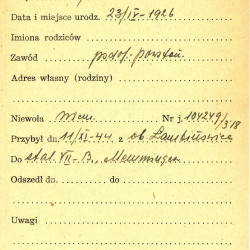 Data i miejsce urodz. 23/IV-1926
Imiona rodziców
Zawód pchor.-powstań.
Adres własny (rodziny)
Niewola niem Nr j. 104249/318
Przybył dn. 11/XI-44 z ob. Lambinowice
Do stal. VII-B, Memmingen
Odszedł dn. do
Uwagi